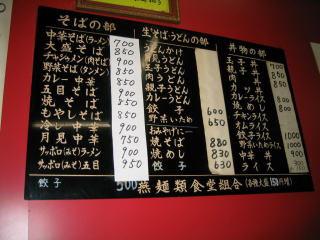 そばの部
中華そば(ラーメン) 700
大盛そば 850
チャシュメン(肉そば) 900
野菜そば(タンメン) 850
カレー中華 850
五目そば 900
焼そば 850
もやしそば 850
900
月見中華 750
サッポロ(みそ)ラーメン 900
サッポロ(みそ)五目 950
餃子 500
生そばうどんの部
うどんかけ
月見うどん
玉子うどん
肉うどん
親子うどん
カレーうどん
餃子 600
野菜いため 650
おみやげに
焼そば 880
焼めし 830
餃子 630
丼物の部
玉子丼
親子丼 850
肉丼 850
カツ丼
カレライス 800
焼めし 800
チャンライス
カツライス
餃子ライス 1000
野菜いためライス 1000
焼肉ライス 1100
ライス
蕪麺類食堂組合 (各種大盛150円増)